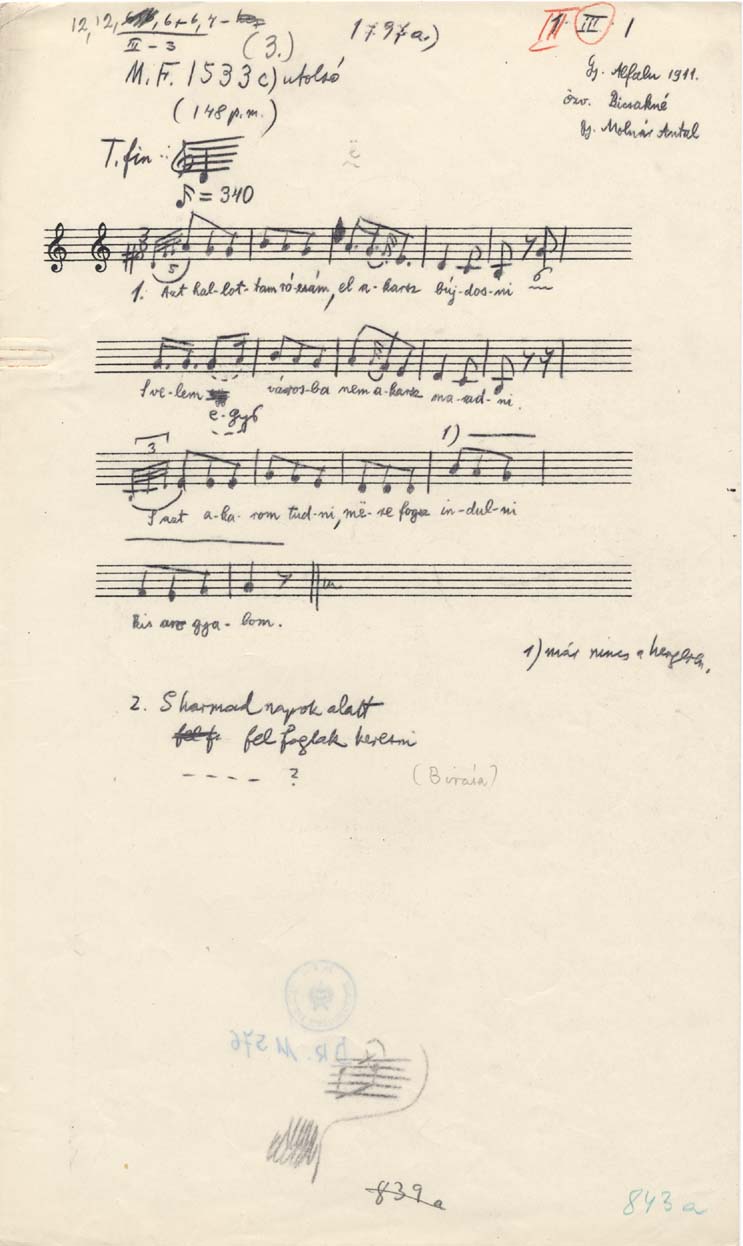 12, 12, 6+6, 4 –
II – 3
(3.)
1797a.)
II 1. III. 1
M.F. 1533c) utolsó
(148 p.m.)
Gy. Alfalu 1911.
özv. Bicsakné
Gy. Molnár Antal
T. fin :
ë
♪ = 340
3
5
1. Azt hal-lot-tam ró-zsám, el a-karsz búj-dos-ni
S ve-lem
város-ba nem a-karsz ma-rad-ni.
e-győ
3
1)
S azt a-ka-rom tud-ni, më-re fogsz in-dul-ni
Kis an gya-lom.
1) már nincs a hengeren.
2. S harmad napok alatt
fel f. fel foglak keresni
– – – – ?
(Biráia)
BR. M 576
839a
843 a